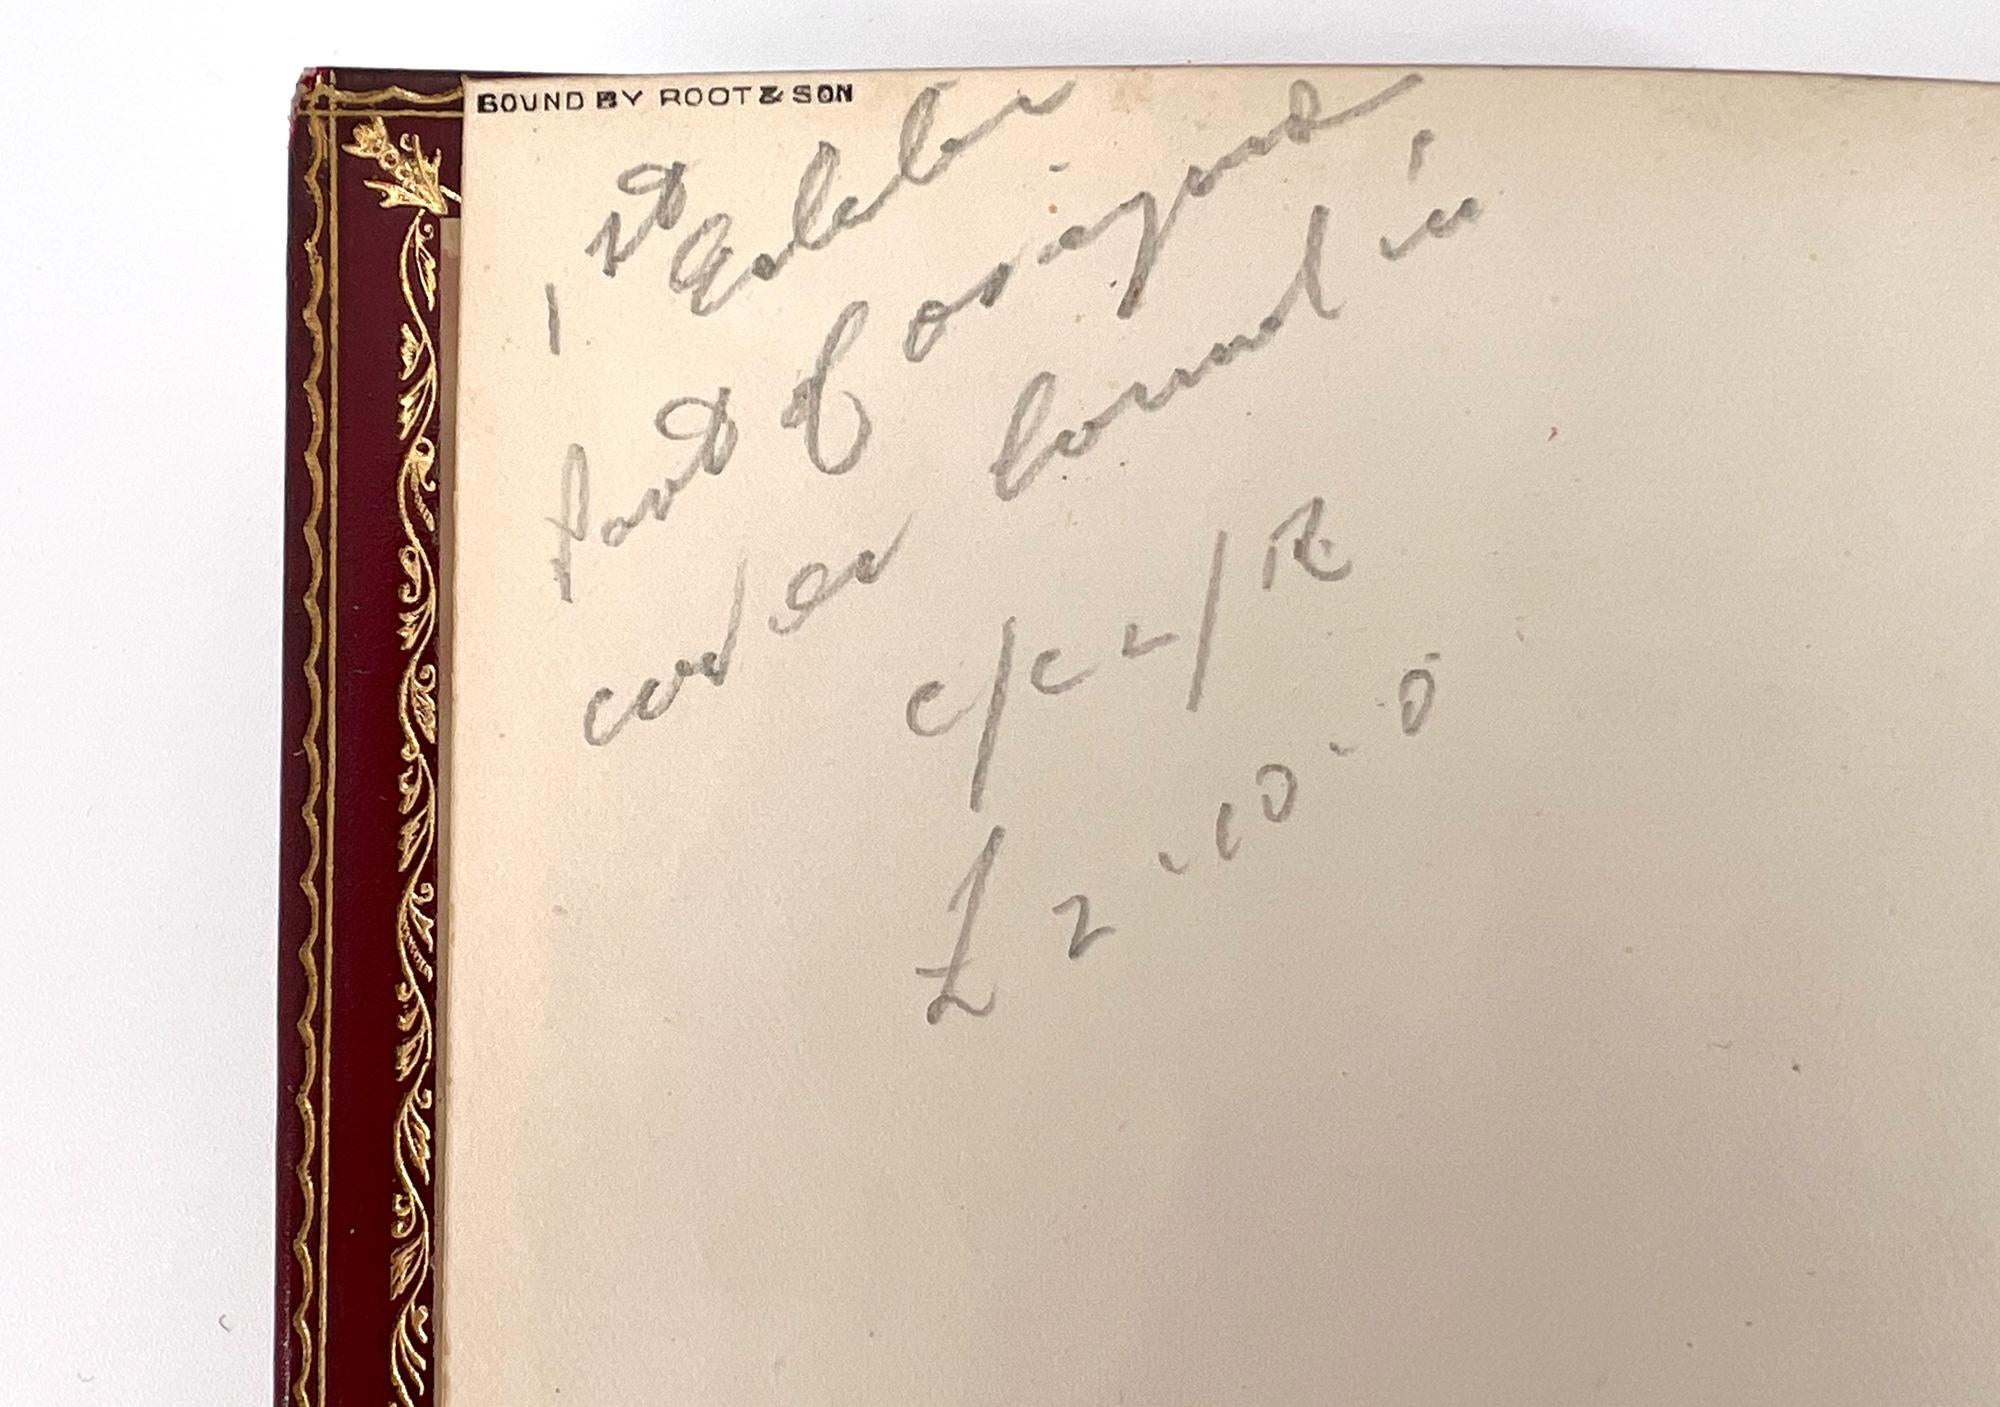 BOUND BY ROOT & SON
1st Edition
Part of original
cover bound in
c/c2/R
£2-10-0